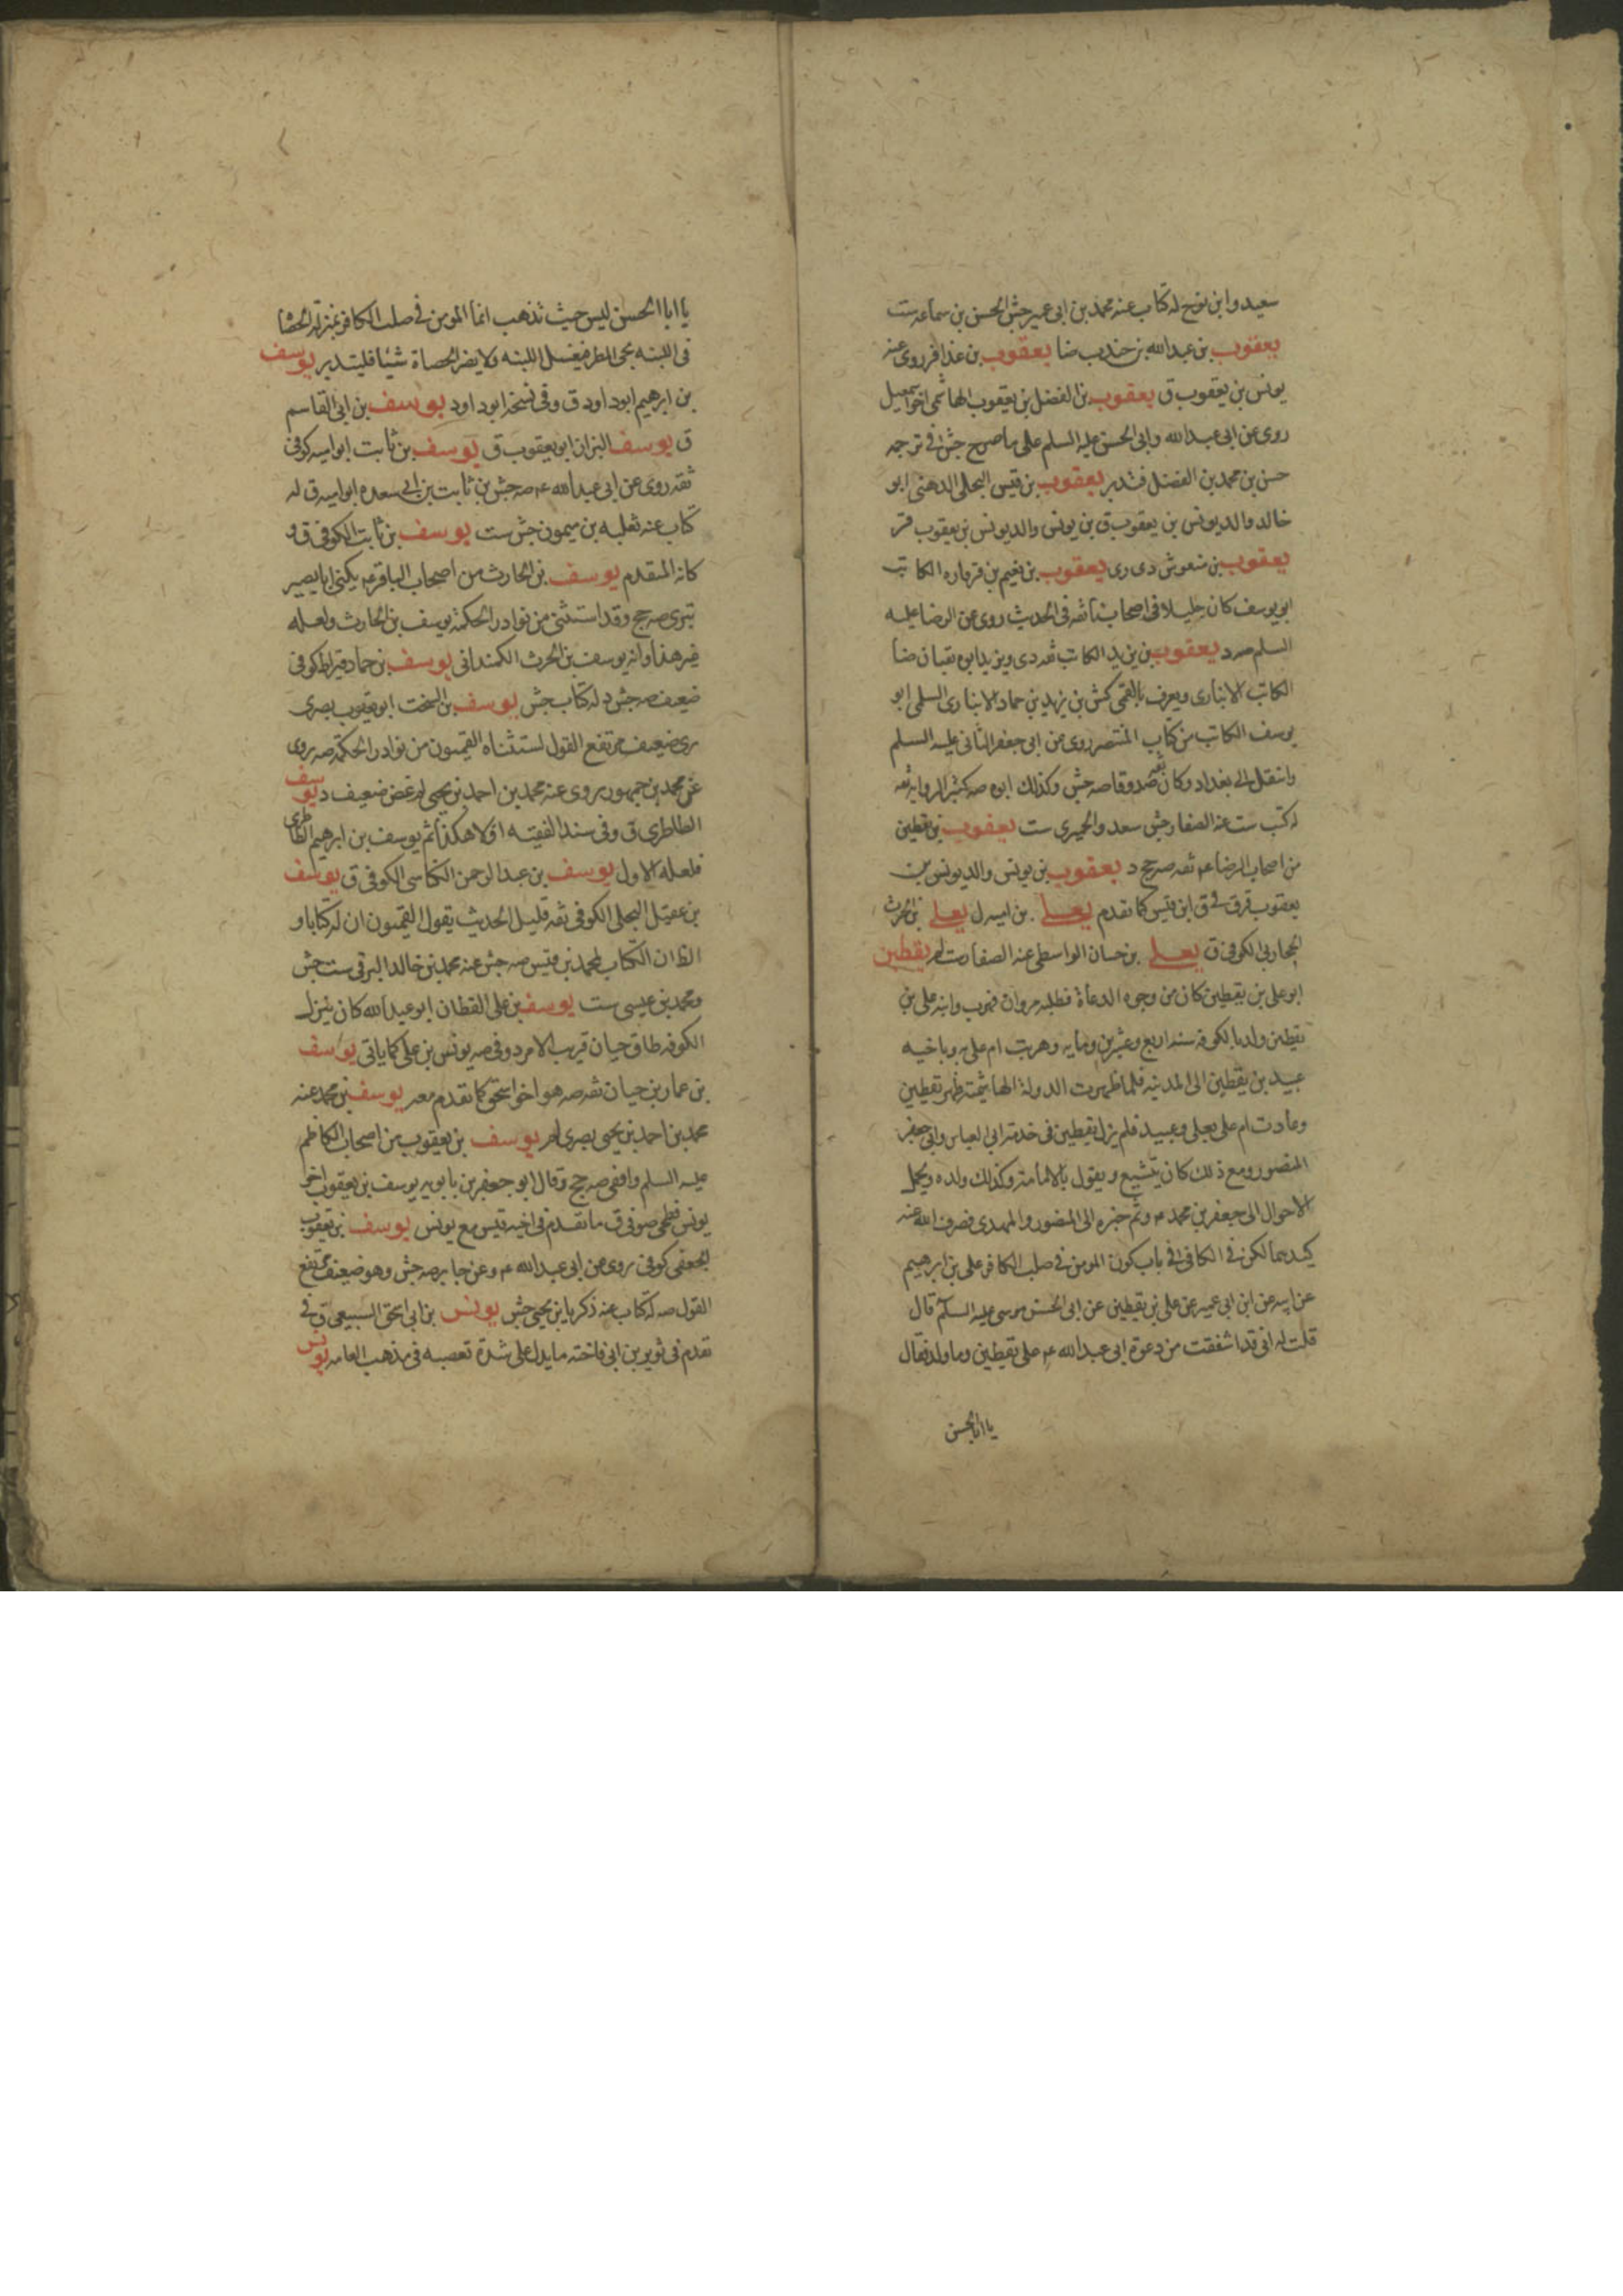 سعيد وابن نوح له كتاب عنه محمد بن ابى عمير جش الحسن بن سماعه ست
يعقوب بن عبدالله بن جندب ضا يعقوب بن عذافر روى عنه
يونس بن يعقوب ق يعقوب بن الفضل بن يعقوب الهاشمى اخو اسمعيل
روى عن ابى عبدالله وابى الحسن عليه السلم على ما صرح جش فى ترجمه
حسن بن محمد بن الفضل فتدبر يعقوب بن قيس البجلى الدهنى ابو
خالد والد يونس بن يعقوب ق بن يونس والد يونس بن يعقوب قر
يعقوب بن منقوش دى رى يعقوب بن نعيم بن قرقاره الكاتب
ابو يوسف كان جليلا فى اصحابنا ثقه فى الحديث روى عن الرضا عليه
السلم صه د يعقوب بن يزيد الكاتب ثقه دى ويزيد ابوه ثقتان ضا
الكاتب الانبارى ويعرف بالقمى كش بن يزيد بن حماد الانبارى السلمى ابو
يوسف الكاتب من كتاب المنتصر روى عن ابى جعفر الثانى عليه السلم
وانتقل الى بغداد وكان ثقه صدوقا صه جش وكذلك ابوه صه كثير الروايه ثقه
له كتب ست عنه الصفار جش سعد والحميرى ست يعقوب بن يقطين
من اصحاب الرضا عم ثقه صه جج د يعقوب بن يونس والد يونس بن
يعقوب قر ق فى ق ابن قيس كما تقدم يعلى بن اميه ل يعلى بن الحرث
المحاربى الكوفى ق يعلى بن حسان الواسطى عنه الصفار ست لم يقطين
ابو على بن يقطين كان من وجوه الدعاة فطلبه مروان فهرب وابنه على بن
يقطين ولد بالكوفه سنه اربع وعشرين ومايه وهربت ام على به وباخيه
عبيد بن يقطين الى المدينه فلما ظهرت الدولة الهاشميه ظهر يقطين
وعادت ام على بعلى وعبيد فلم يزل يقطين فى خدمة ابى العباس وابى جعفر
المنصور ومع ذلك كان يتشيع ويقول بالامامة وكذلك ولده ويحمل
الاموال الى جعفر بن محمد عم ونم خبره الى المنصور والمهدى فصرف الله عنه
كيدهما لكن فى الكافى فى باب كون المومن فى صلب الكافر على بن ابرهيم
عن ابيه عن ابن ابى عمير عن على بن يقطين عن ابى الحسن موسى عليه السلم قال
قلت له انى قد اشفقت من دعوة ابى عبدالله عم على يقطين وما ولد فقال
يا ابا الحسن
يا ابا الحسن ليس حيث تذهب انما المومن فى صلب الكافر بمنزلة الحصاة
فى اللبنه يجى المطر فيغسل اللبنه ولا يضر الحصاة شيئا فليتدبر يوسف
بن ابرهيم ابو داود ق وفى نسخه ابو داود يوسف بن ابى القاسم
ق يوسف البزاز ابو يعقوب ق يوسف بن ثابت ابو اميه كوفى
ثقه روى عن ابى عبدالله عم صه جش بن ثابت بن ابى سعده ابو اميه ق له
كتاب عنه ثعلبه بن ميمون جش ست يوسف بن ثابت الكوفى ق و
كانه المتقدم يوسف بن الحارث من اصحاب الباقر عم يكنى ابا بصير
بترى صه جج وقد استثنى من نوادر الحكمة يوسف بن الحارث ولعله
غير هذا وانه يوسف بن الحرث الكمندانى يوسف بن حماد قيراط كوفى
ضعيف صه جش د له كتاب جش يوسف بن السخت ابو يعقوب بصرى
رى ضعيف مرتفع القول استثناه القميون من نوادر الحكمة صه روى
عن محمد بن جمهور روى عنه محمد بن احمد بن يحيى لم غض ضعيف د يوسف
الطاطرى ق وفى سند الفقيه اولا هكذا ثم يوسف بن ابرهيم الطاطرى
فلعله الاول يوسف بن عبد الرحمن الكناسى الكوفى ق يوسف
بن عقيل البجلى الكوفى ثقه قليل الحديث يقول القميون ان له كتابا و
الظ ان الكتاب لمحمد بن قيس صه جش عنه محمد بن خالد البرقى ست جش
ومحمد بن عيسى ست يوسف بن على القطان ابو عبدالله كان ينزل
الكوفه طاق حيان قريب الامر د وفى صه يونس بن على كما ياتى يوسف
بن عمار بن حيان ثقه صه هو اخو اسحق كما تقدم معه يوسف بن محمد عنه
محمد بن احمد بن يحيى بصرى لم يوسف بن يعقوب من اصحاب الكاظم
عليه السلم واقفى صه جج وقال ابو جعفر بن بابويه يوسف بن يعقوب اخو
يونس فطحى صوفى ق ما تقدم فى اخيه قيس مع يونس يوسف بن يعقوب
الجعفى كوفى روى عن ابى عبدالله عم وعن جابر صه جش وهو ضعيف مرتفع
القول صه له كتاب عنه زكريا بن يحيى جش يونس بن ابى اسحق السبيعى ق فى
تقدم فى ثوير بن ابى فاخته ما يدل على شدة تعصبه فى مذهب العامه يونس